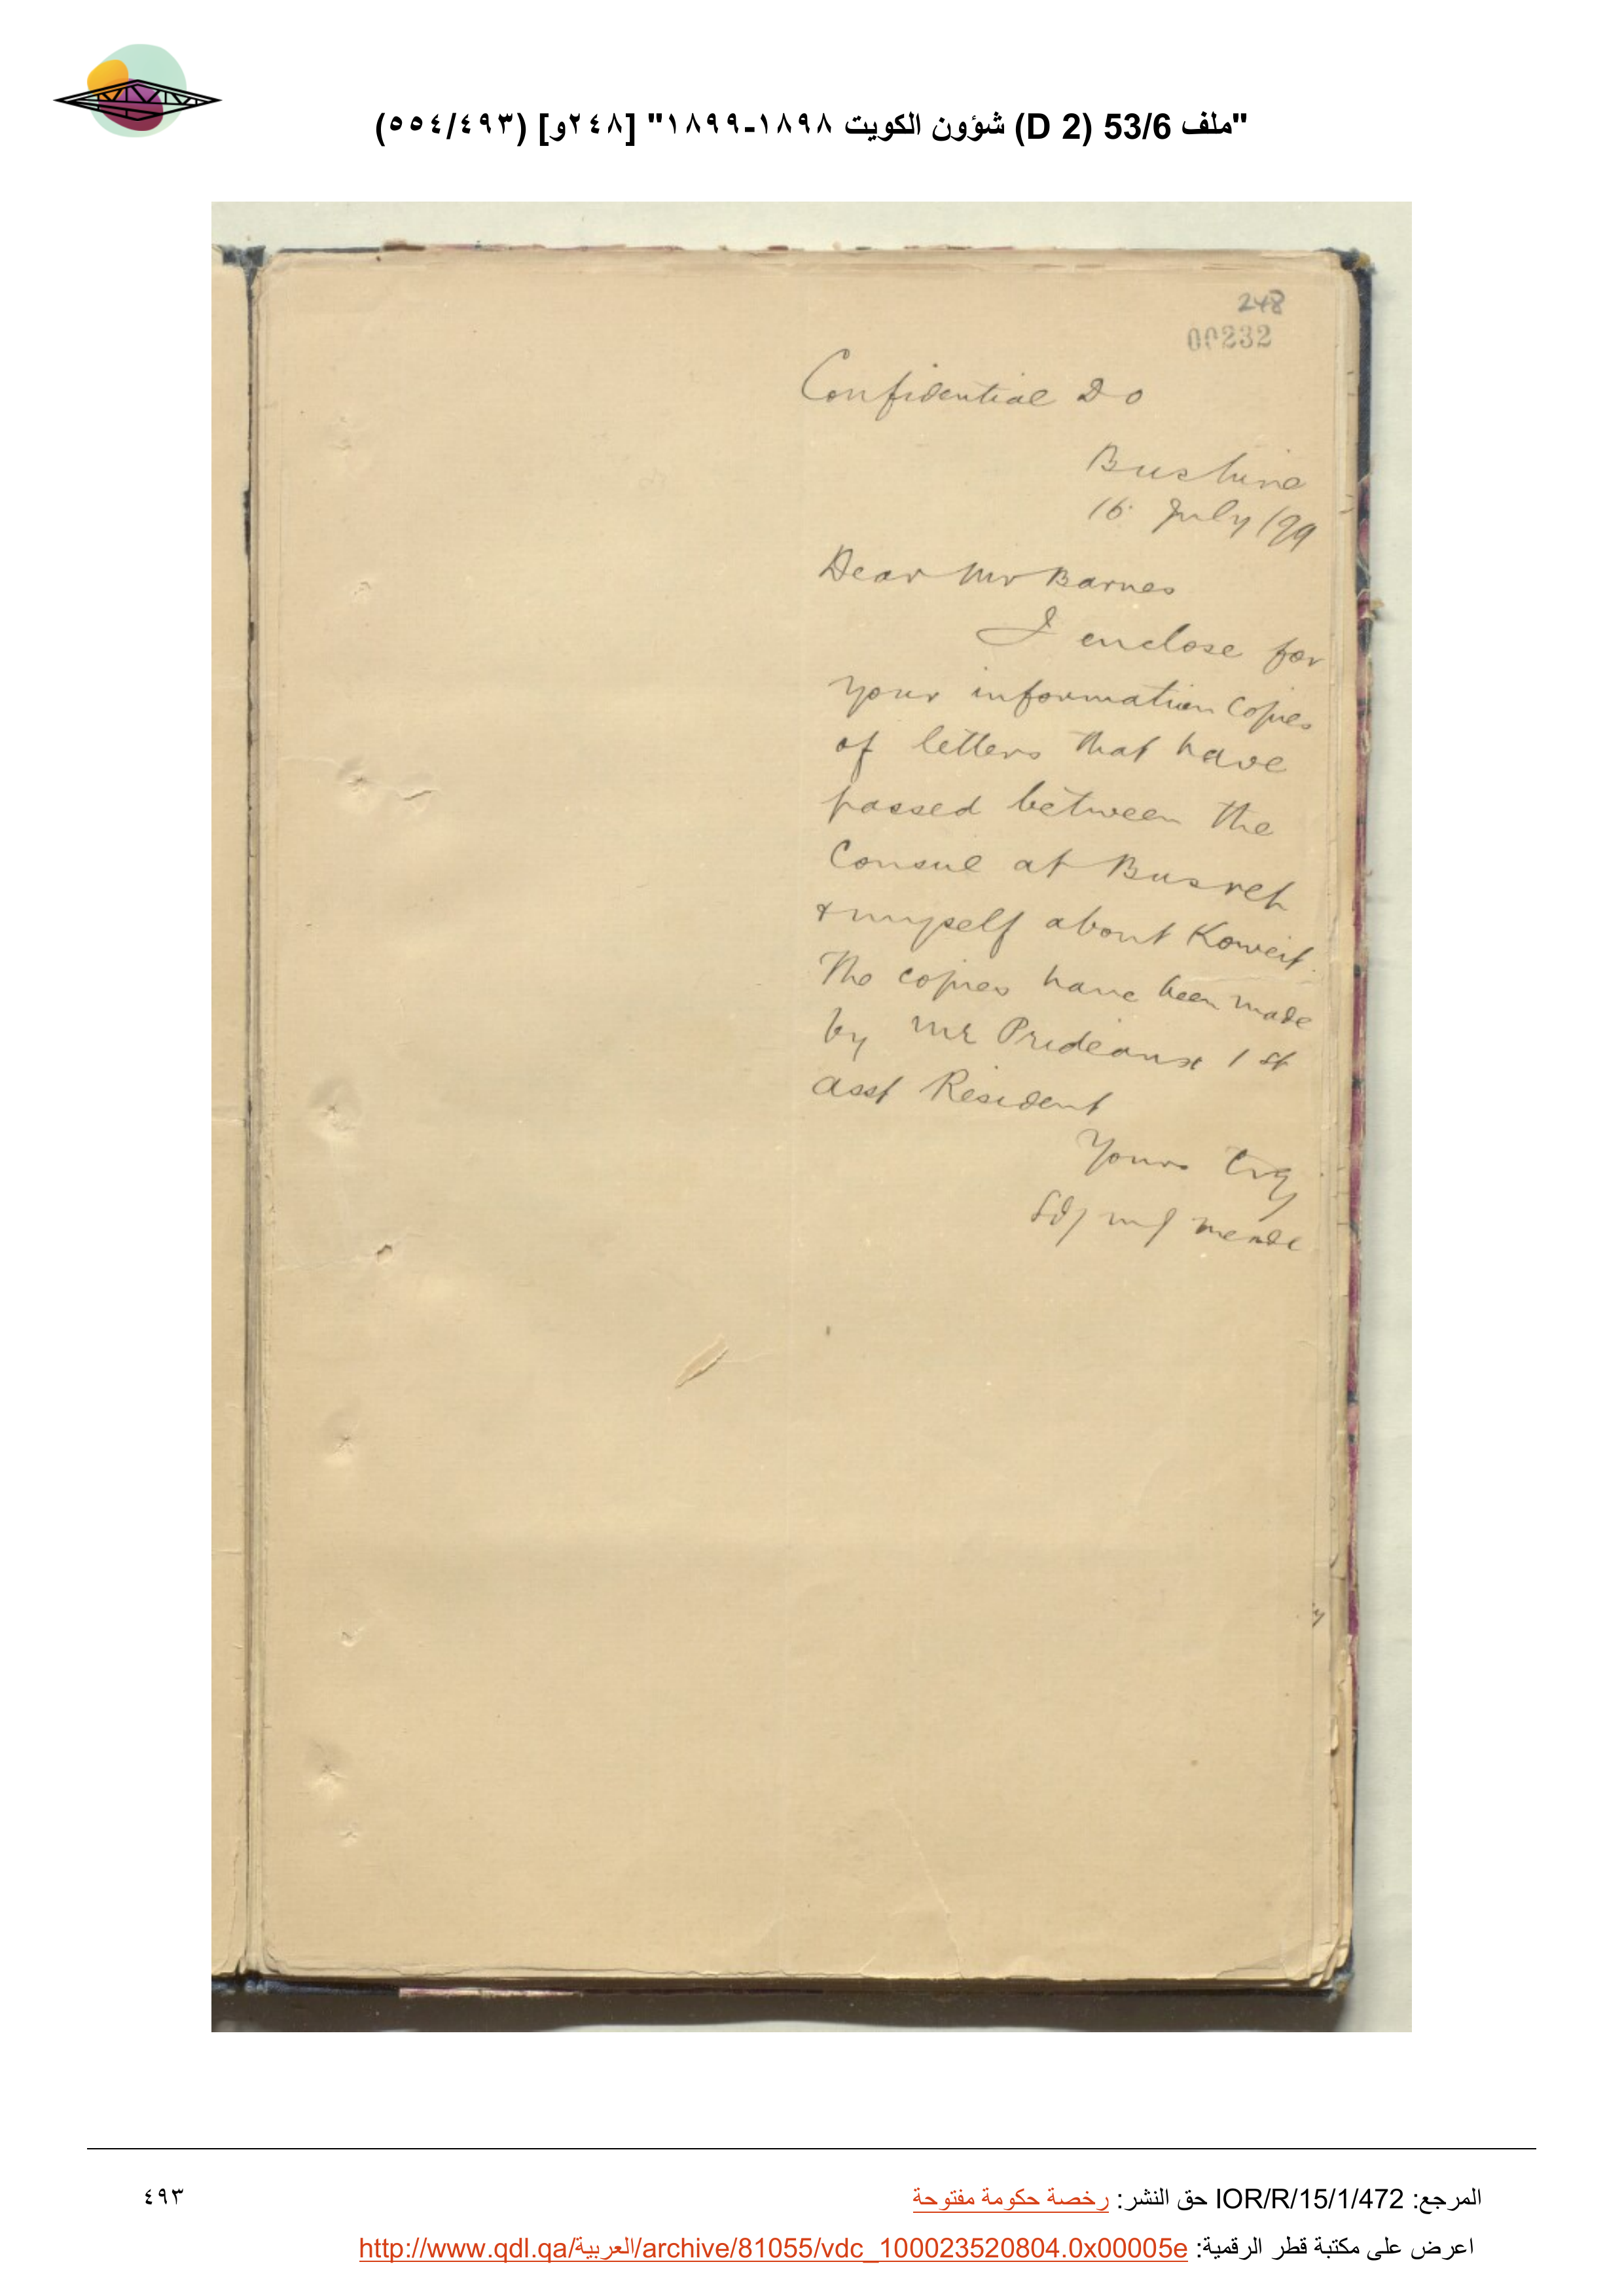 "ملف 53/6 (D 2) شؤون الكويت ١٨٩٨-١٨٩٩" [٢٤٨و] (٤٩٣/٥٥٤)
248
00232
Confidential DO
Bushire
16 July /99
Dear Mr Barnes
I enclose for
your information copies
of letters that have
passed between the
Consul at Busreh
& myself about Koweit.
The copies have been made
by Mr Prideaux 1st
Asst Resident
Yours try
Sd/ Meade
المرجع: IOR/R/15/1/472 حق النشر: رخصة حكومة مفتوحة
٤٩٣
اعرض على مكتبة قطر الرقمية: http://www.qdl.qa/العربية/archive/81055/vdc_100023520804.0x00005e